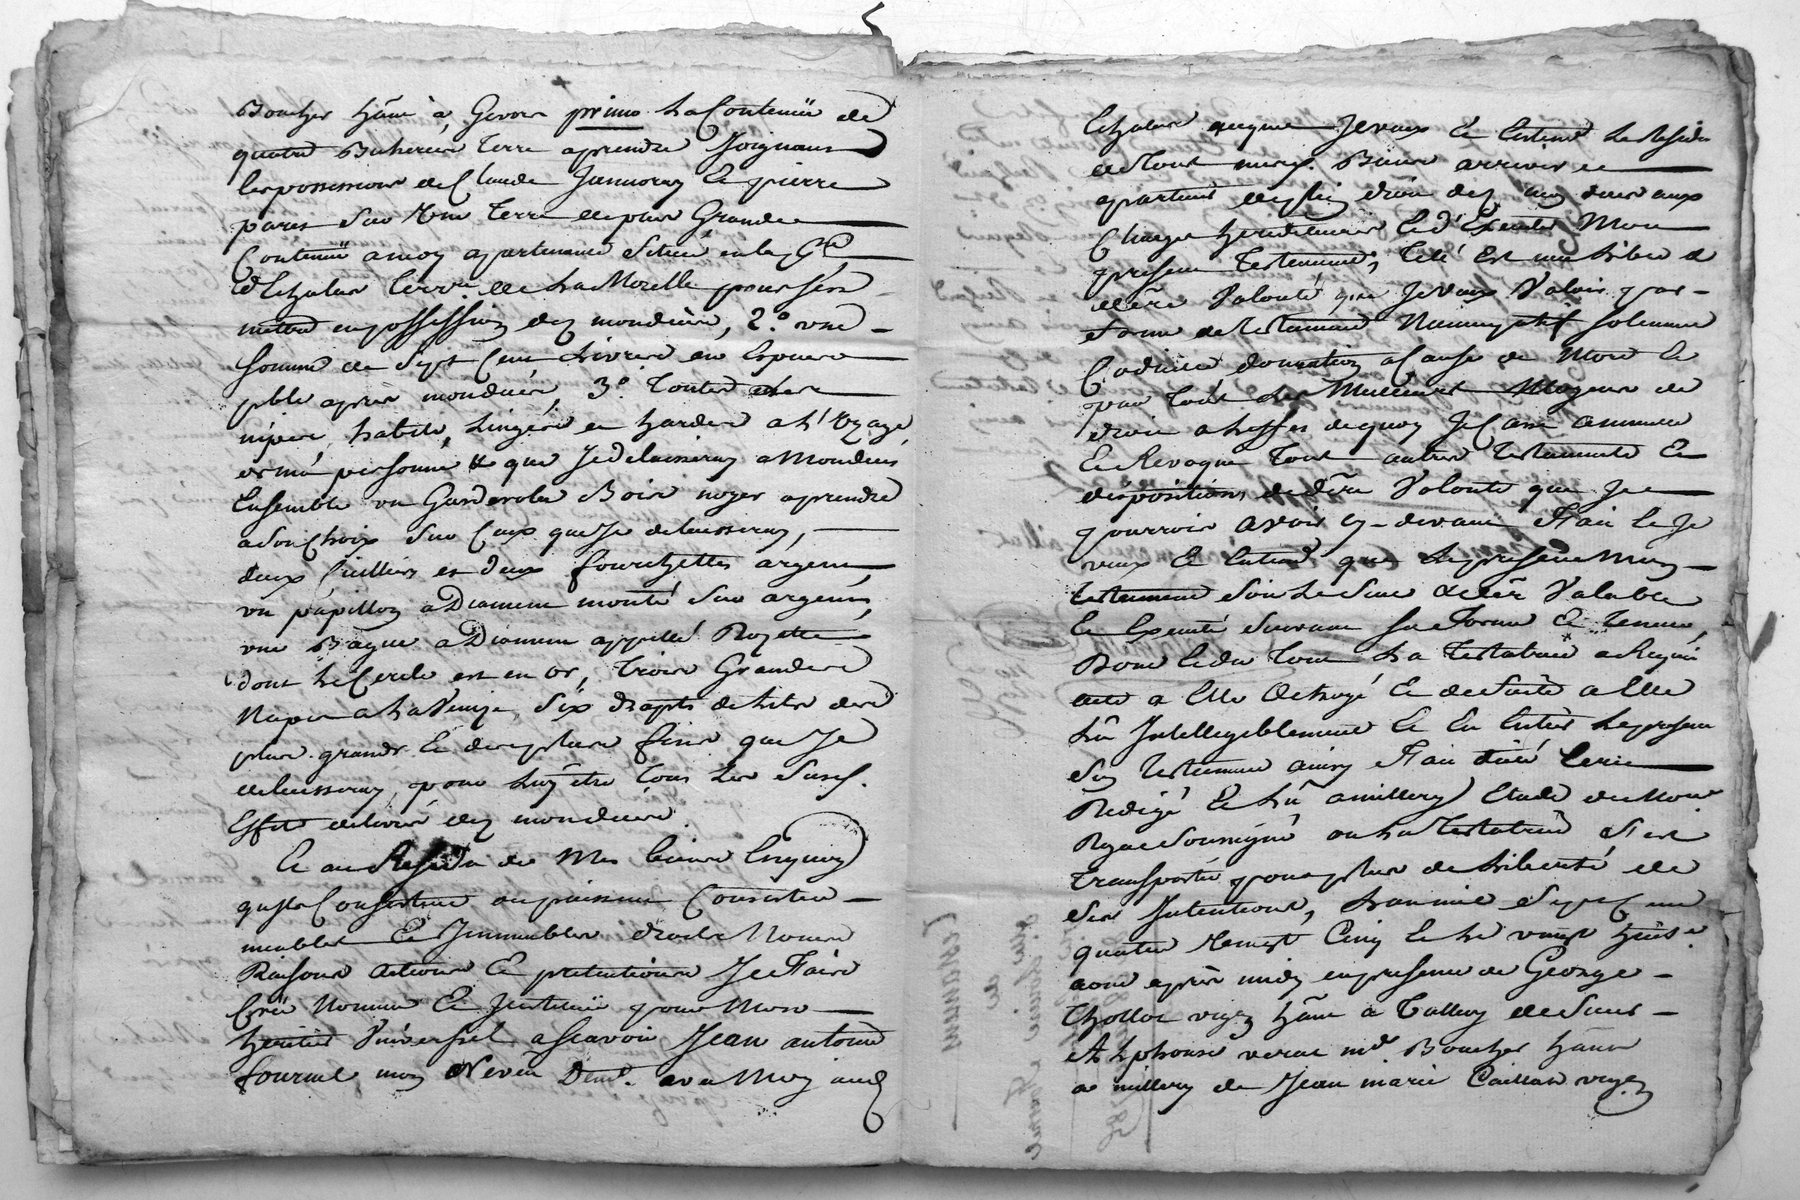 Boucher hãnt à Givors primo La Contenüe de
quatre Bicherées Terre aprendre Joignant
les possessions de Claude Jannoray Et pierre
paret sur Une Terre de plus Grande
Contenüe amoy apartenante Scituée en la
d'Echalas Terr.re de La Morelle pour s'en
mettre en possession dez mondécès, 2.° une
somme de Sept Cent Livres en Espece
pble après mondécès, 3.° Toutes
nipes, habits, Lingerie et hardes a L'Uzage
de ma personne que Je delaisseray a Mondécès
Ensemble un Garderobe Bois noyer aprendre
a son Choix sur Ceux que Je delaisseray,
deux Cuilliers et deux fourchettes argent
un papillon a Diament monté sur argent,
une Bague a Diament appellé Rozette
dont Le Cercle est en or, Trois Grandes
Napes a La Venize, Six draps de Lits des
plus grands Et des plus fins que Je
delaisseray, pour Luy être Tous Les Susd.
Effets delivrés dez mondécès.
Et au Résidu de Mes biens Enquoy
quils Consistent ou puissent Consister
meubles Et Immeubles droits Noms
Raisons actions Et prétentions Je Faire
Crée Nomme Et Institüe pour Mon
héritier Universel ascavoir Jean antoine
fournel mon Neveu Dem.t avec Moy aud
Echalas auquel Je veux Et Entend Le Résidu
de Tout mesd. Biens arriver et
apartenir de plein droit dez aux
Charges héréditaires Et d'Executer Mon
present Testament, Telé Est ma Libre &
dère Volonté, que Je Veux Valoir par
Forme de testament Nuncupatif solemnel
Codicile donation a Cause de Mort Et
par Tout Les Meilleurs Moyens de
droit a Leffet dequoy Je Casse annulle
Et Revoque Tout autres Testaments Et
dispositions de dère Volonté que Je
pourrois avoir Cy-devant Fait Et Je
veux Et Entend que Le present Mon
testament Soit Le Seul Valable
Et Executé Suivant Sa Forme Et Teneur,
Dont Et du Tout La Testatrice a Requis
acte a Elle Octroyé Et de Suite a Elle
Lû Intelligeblement Et En Entier Le present
Son Testament ainsy Fait dicté Ecrit
Redigé Et Lû amillery Etude du Not.re
Royal Soussigné ou La Testatrice S'est
transportée pour plus de Liberté de
Ses Intentions, L'an mil Sept Cent
quatre Vingt Cinq Et Le vingt huit
aout après midy en presence de George
Thollot vign hãnt à Talluy de Sieur
Alphonse verne md. Boucher hãnt
a millery de Jean marie Caillat vign